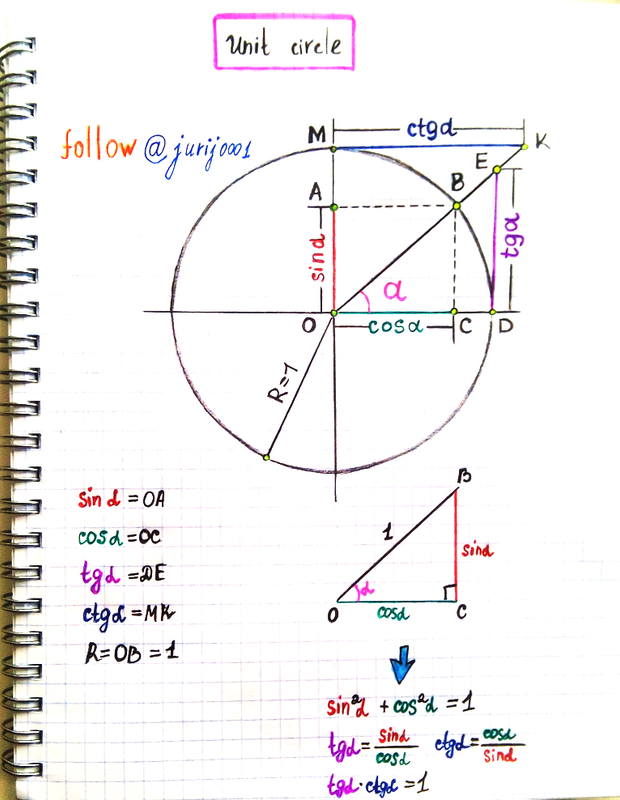 Unit circle
follow @jurij0001
M
ctgα
K
E
B
A
sinα
α
tgα
O
cosα
C
D
R=1
sin α = OA
cosα = OC
tgα = DE
ctgα = MK
R=OB=1
B
1
sinα
α
O
cosα
C
sin²α + cos²α = 1
tgα = sinα/cosα ctgα = cosα/sinα
tgα · ctgα = 1